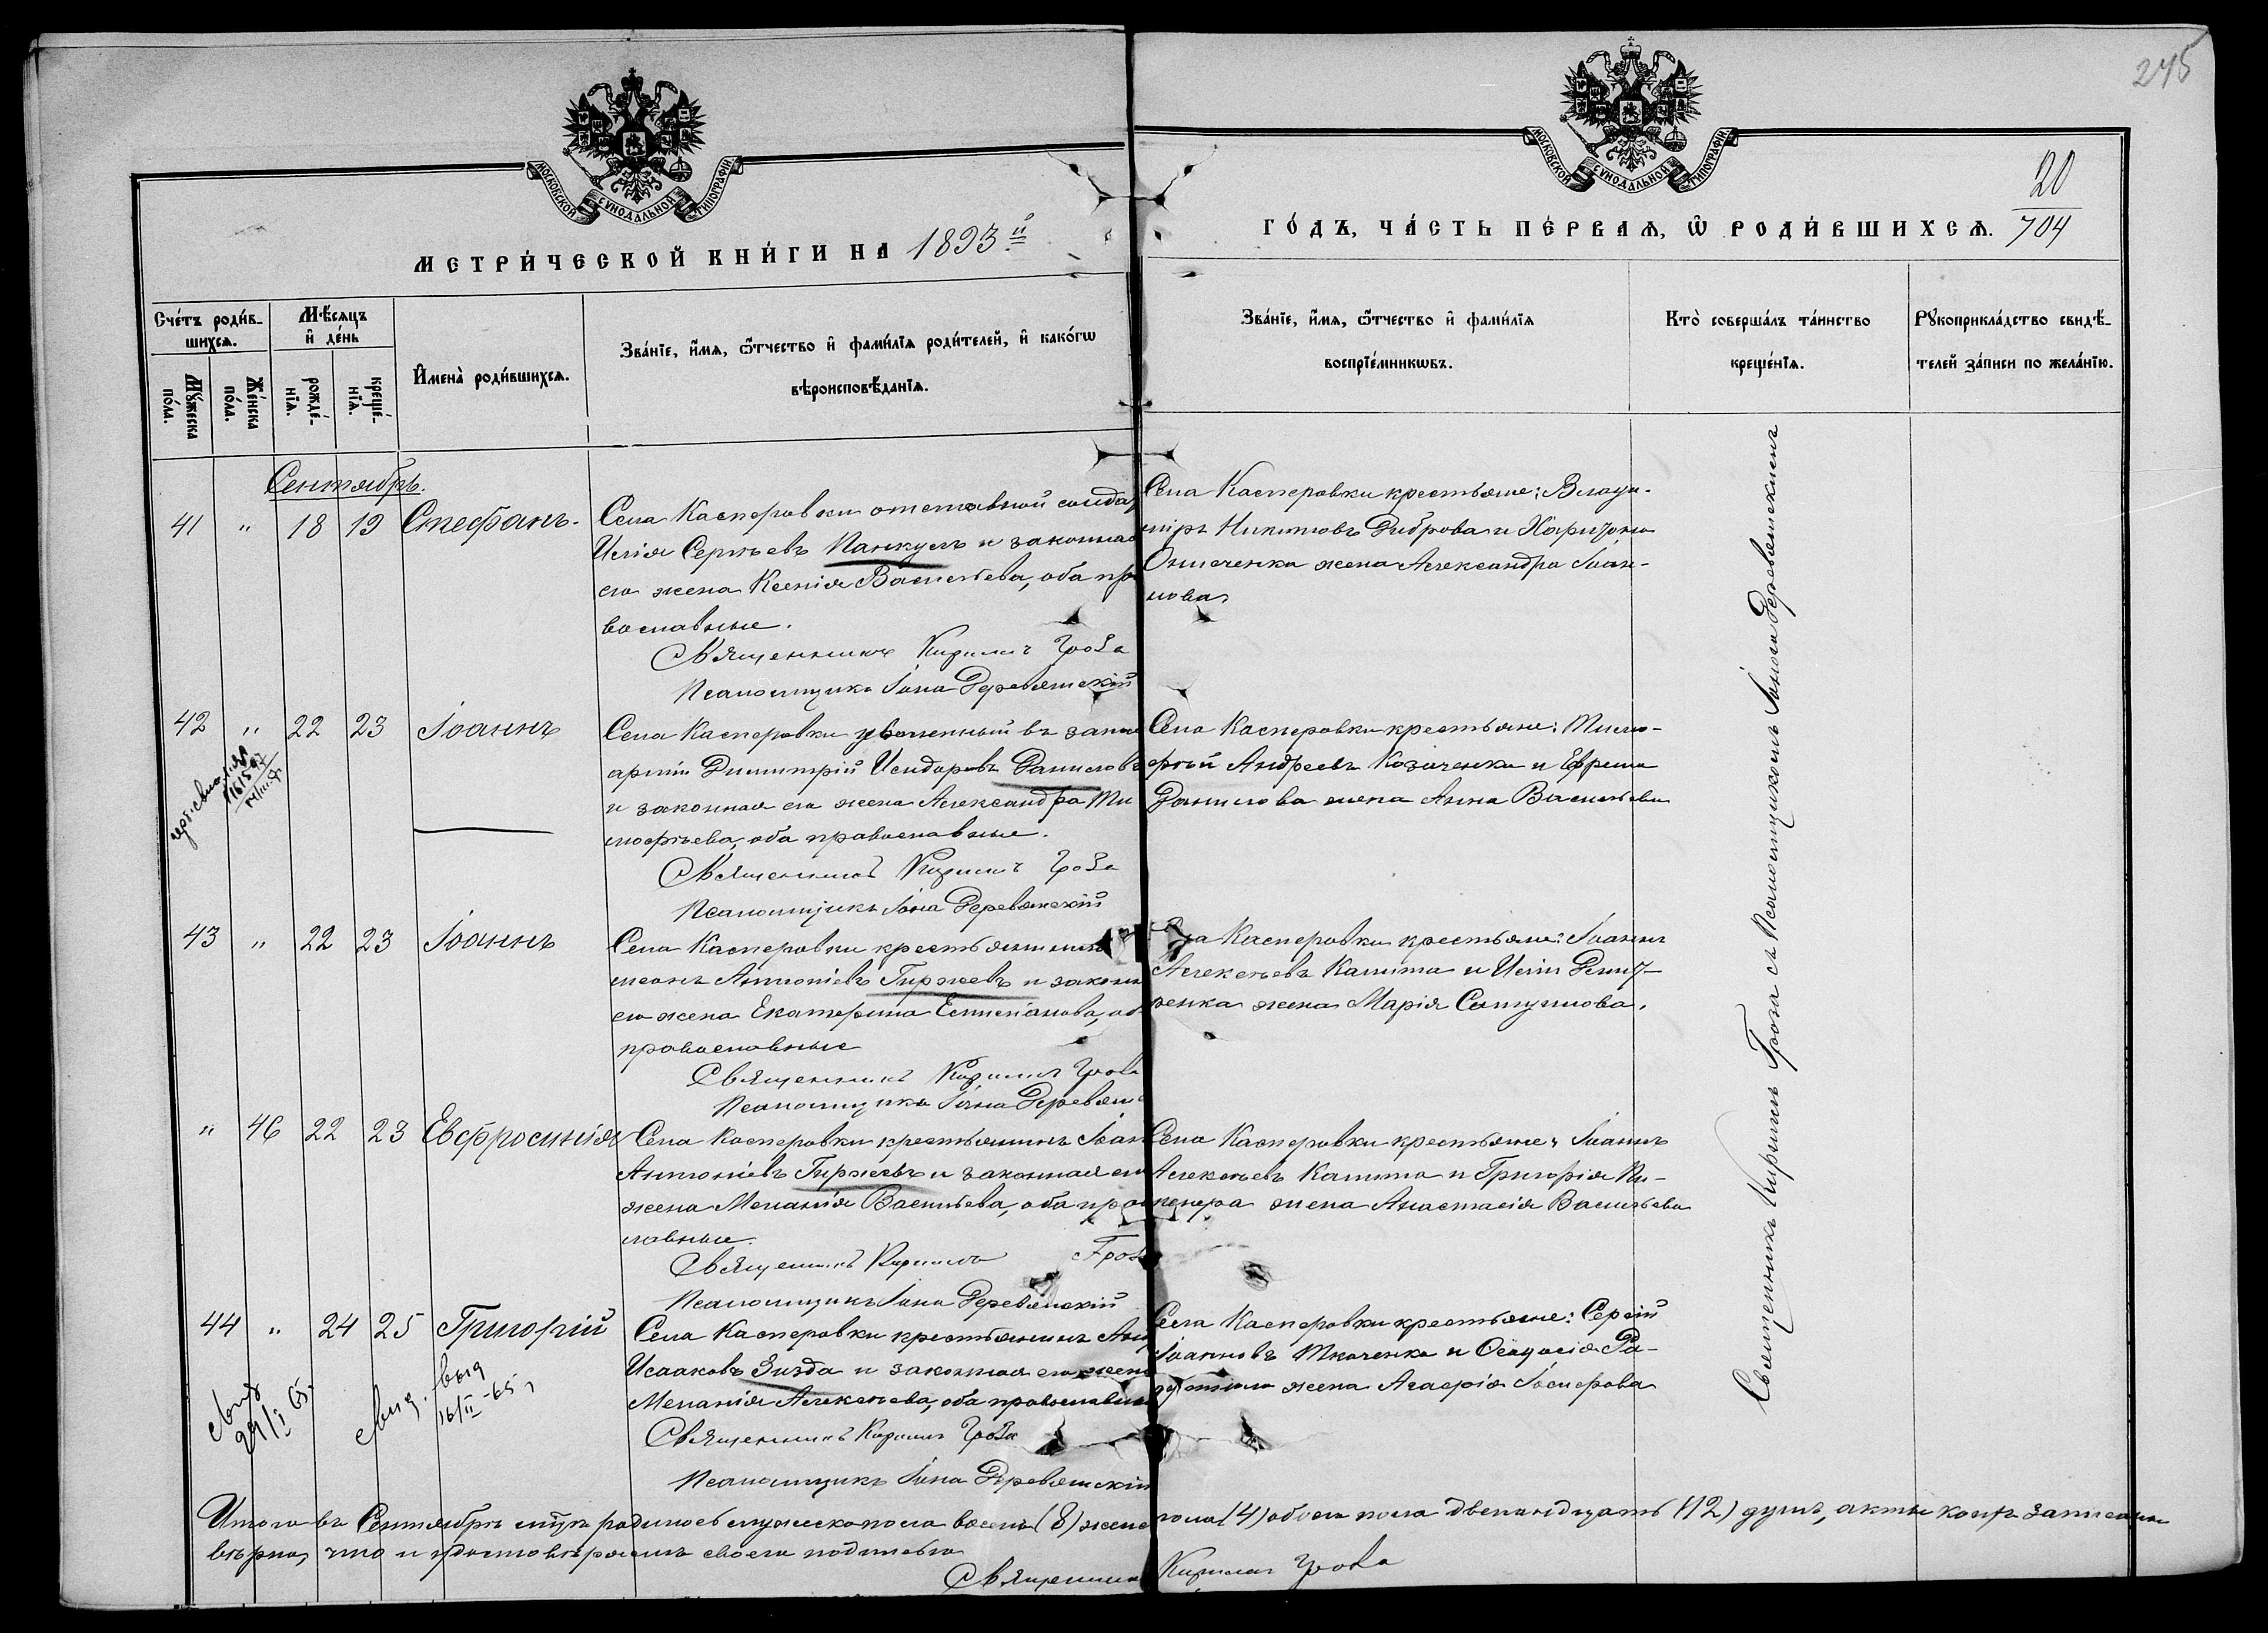 245
МОСКОВСКОЙ СѴНОДАЛЬНОЙ ТИПОГРАФІИ
МОСКОВСКОЙ СѴНОДАЛЬНОЙ ТИПОГРАФІИ
МЕТРИ́ЧЕСКОЙ КНИ́ГИ НА 1893й
ГО́ДЪ, ЧА́СТЬ ПЕ́РВАѦ, Ѿ РОДИ́ВШИХСѦ.
20
704
Сче́тъ роди́в-
шихсѧ.
Мꙋ́жеска
по́ла.
Же́нска
по́ла.
Мѣ́сѧцъ
и҆ де́нь
рожде́-
нїѧ.
креще́-
нїѧ.
И҆мена̀ роди́вшихсѧ.
Зва́нїе, и҆́мѧ, ѻ҆́тчество и҆ фами́лїѧ роди́телей, и҆ како́гѡ
вѣроисповѣ́данїѧ.
Зва́нїе, и҆́мѧ, ѻ҆́тчество и҆ фами́лїѧ
воспрїе́мникѡвъ.
Кто̀ соверша́лъ та́инство
креще́нїѧ.
Рꙋкоприкла́дство свидѣ́-
телей за́писи по жела́нїю.
Сентябрь.
41 " 18 19 Стефанъ.
Села Касперовки отставной солда
Илія Сергѣевъ Панкулъ и законная
его жена Ксенія Васильева, оба пра
вославные.
Священникъ Кириллъ Гроза
Псаломщикъ Іона Деревянскій
Села Касперовки крестьяне: Влади-
міръ Никитовъ Диброва и Харитона
жена Александра Іоан-
нова
42 " 22 23 Іоаннъ
Села Касперовки уволенный въ запас
арміи Димитрій Исидоровъ Даниловъ
и законная его жена Александра Ти
мофѣева, оба православные.
Священникъ Кириллъ Гроза
Псаломщикъ Іона Деревянскій
Села Касперовки крестьяне: Тимо-
фей Андреевъ Козаченко и Ефрема
Данилова жена Анна Васильева
43 " 22 23 Іоаннъ
Села Касперовки крестьянинъ
Антоніевъ Гиржевъ и законн
его жена Екатерина Емиліанова, об
православные
Священникъ Кириллъ Гроза
Псаломщикъ Іона Деревян
Касперовки крестьяне: Іоаннъ
Алексѣевъ Калита и Иліи
жена Марія Самуилова.
" 46 22 23 Евфросинія
Села Касперовки крестьянинъ Іоан
Антоніевъ Гиржевъ и законная его
жена Меланія Васильева, оба пра
славные.
Священникъ Кириллъ Гроза
Псаломщикъ Іона Деревянскій
Села Касперовки крестьяне: Іоаннъ
Алексѣевъ Калита и Григорія
жена Анастасія Васильева
44 " 24 25 Григорій
Села Касперовки крестьянинъ
Исааковъ Зизда и законная его жена
Меланія Алексѣева, оба православн
Священникъ Кириллъ Гроза
Псаломщикъ Іона Деревянскій
Села Касперовки крестьяне: Сергій
Іоанновъ Ткаченко и
жена Агафія Іосифова
свид
29/I 65.
свид. выд
16/II-65 г
Священникъ Кириллъ Гроза съ Псаломщикомъ Іоною Деревянскимъ
Итого въ Сентябрѣ м-цѣ родилось мужеска пола восемь (8) женс пола (4) обоего пола двенандцать (12) душъ, акты коихъ записаны
вѣрно, что и удостовѣряемъ своею подписью
Священник Кириллъ Гроза